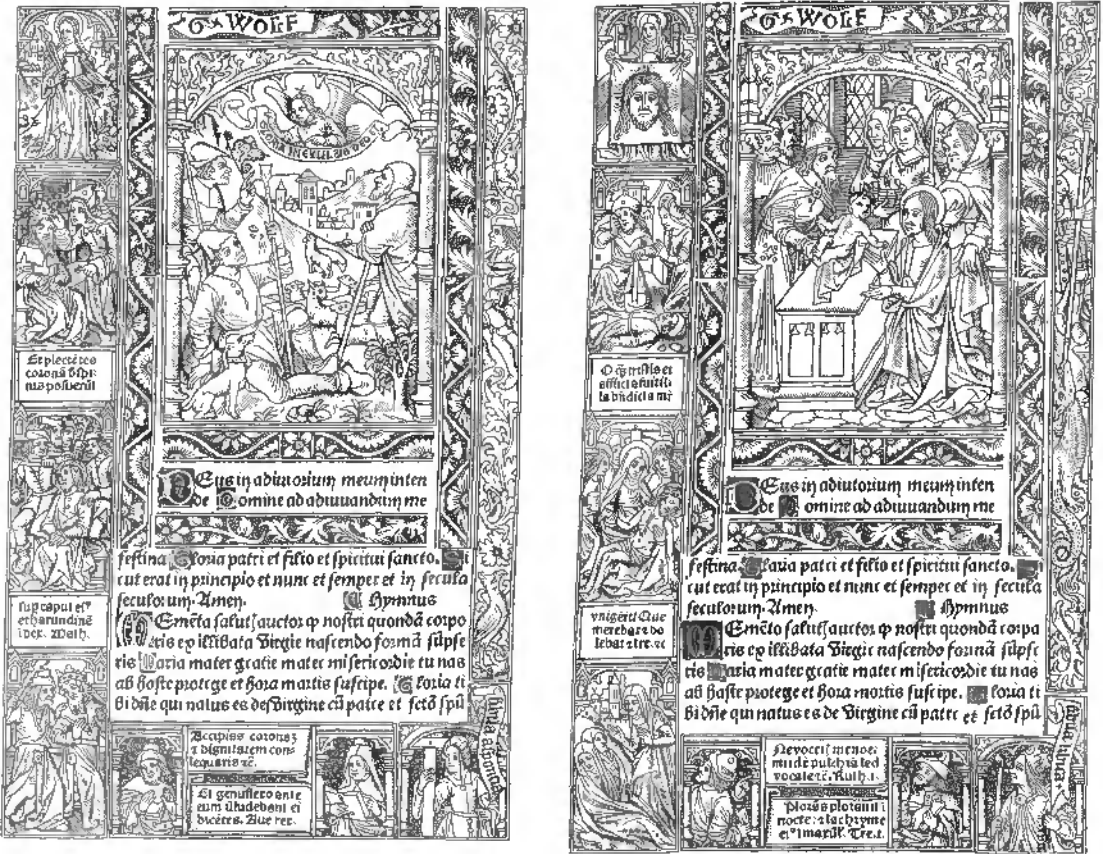 G WOLF
Et plectētes
coronā d spi
nas posuerūt
Deus in adiutorium meum inten
de Domine ad adiuuandum me
festina Gloria patri et filio et spiritui sancto. Si
cut erat in principio et nunc et semper et in secula
seculorum. Amen. Hymnus
Memēto salut auctor q nostri quondā corpo
ris ex illibata Virgie nascendo formā sūpse
ris Maria mater gratie mater misericordie tu nas
ab hoste protege et hora mortis suscipe. Gloria ti
bi dn̄e qui natus es de Virgine cū patre et sctō spū
sup caput ei
et harundinē
Accipias coronaz
z dignitatem cons
sequaris
Et genuflexo ante
eum illudebant ei
dicētes. Aue rex.
G WOLF
O tristis et
afflicta fuit il
la bn̄dicta mr̄
Deus in adiutorium meum inten
de Domine ad adiuuandum me
festina Gloria patri et filio et spiritui sancto. Si
cut erat in principio et nunc et semper et in secula
seculorum. Amen. Hymnus
Memēto salut auctor q nostri quondā corpo
ris ex illibata Virgie nascendo formā sūpse
ris Maria mater gratie mater misericordie tu nas
ab hoste protege et hora mortis suscipe. Gloria ti
bi dn̄e qui natus es de Virgine cū patre et sctō spū
vnigeniti Que
merebat z do
lebat
Ne voceti me noe
mi id e pulchra sed
vocate zc. Ruth.1.
Plorās plorauit ī
nocte: z lachryme